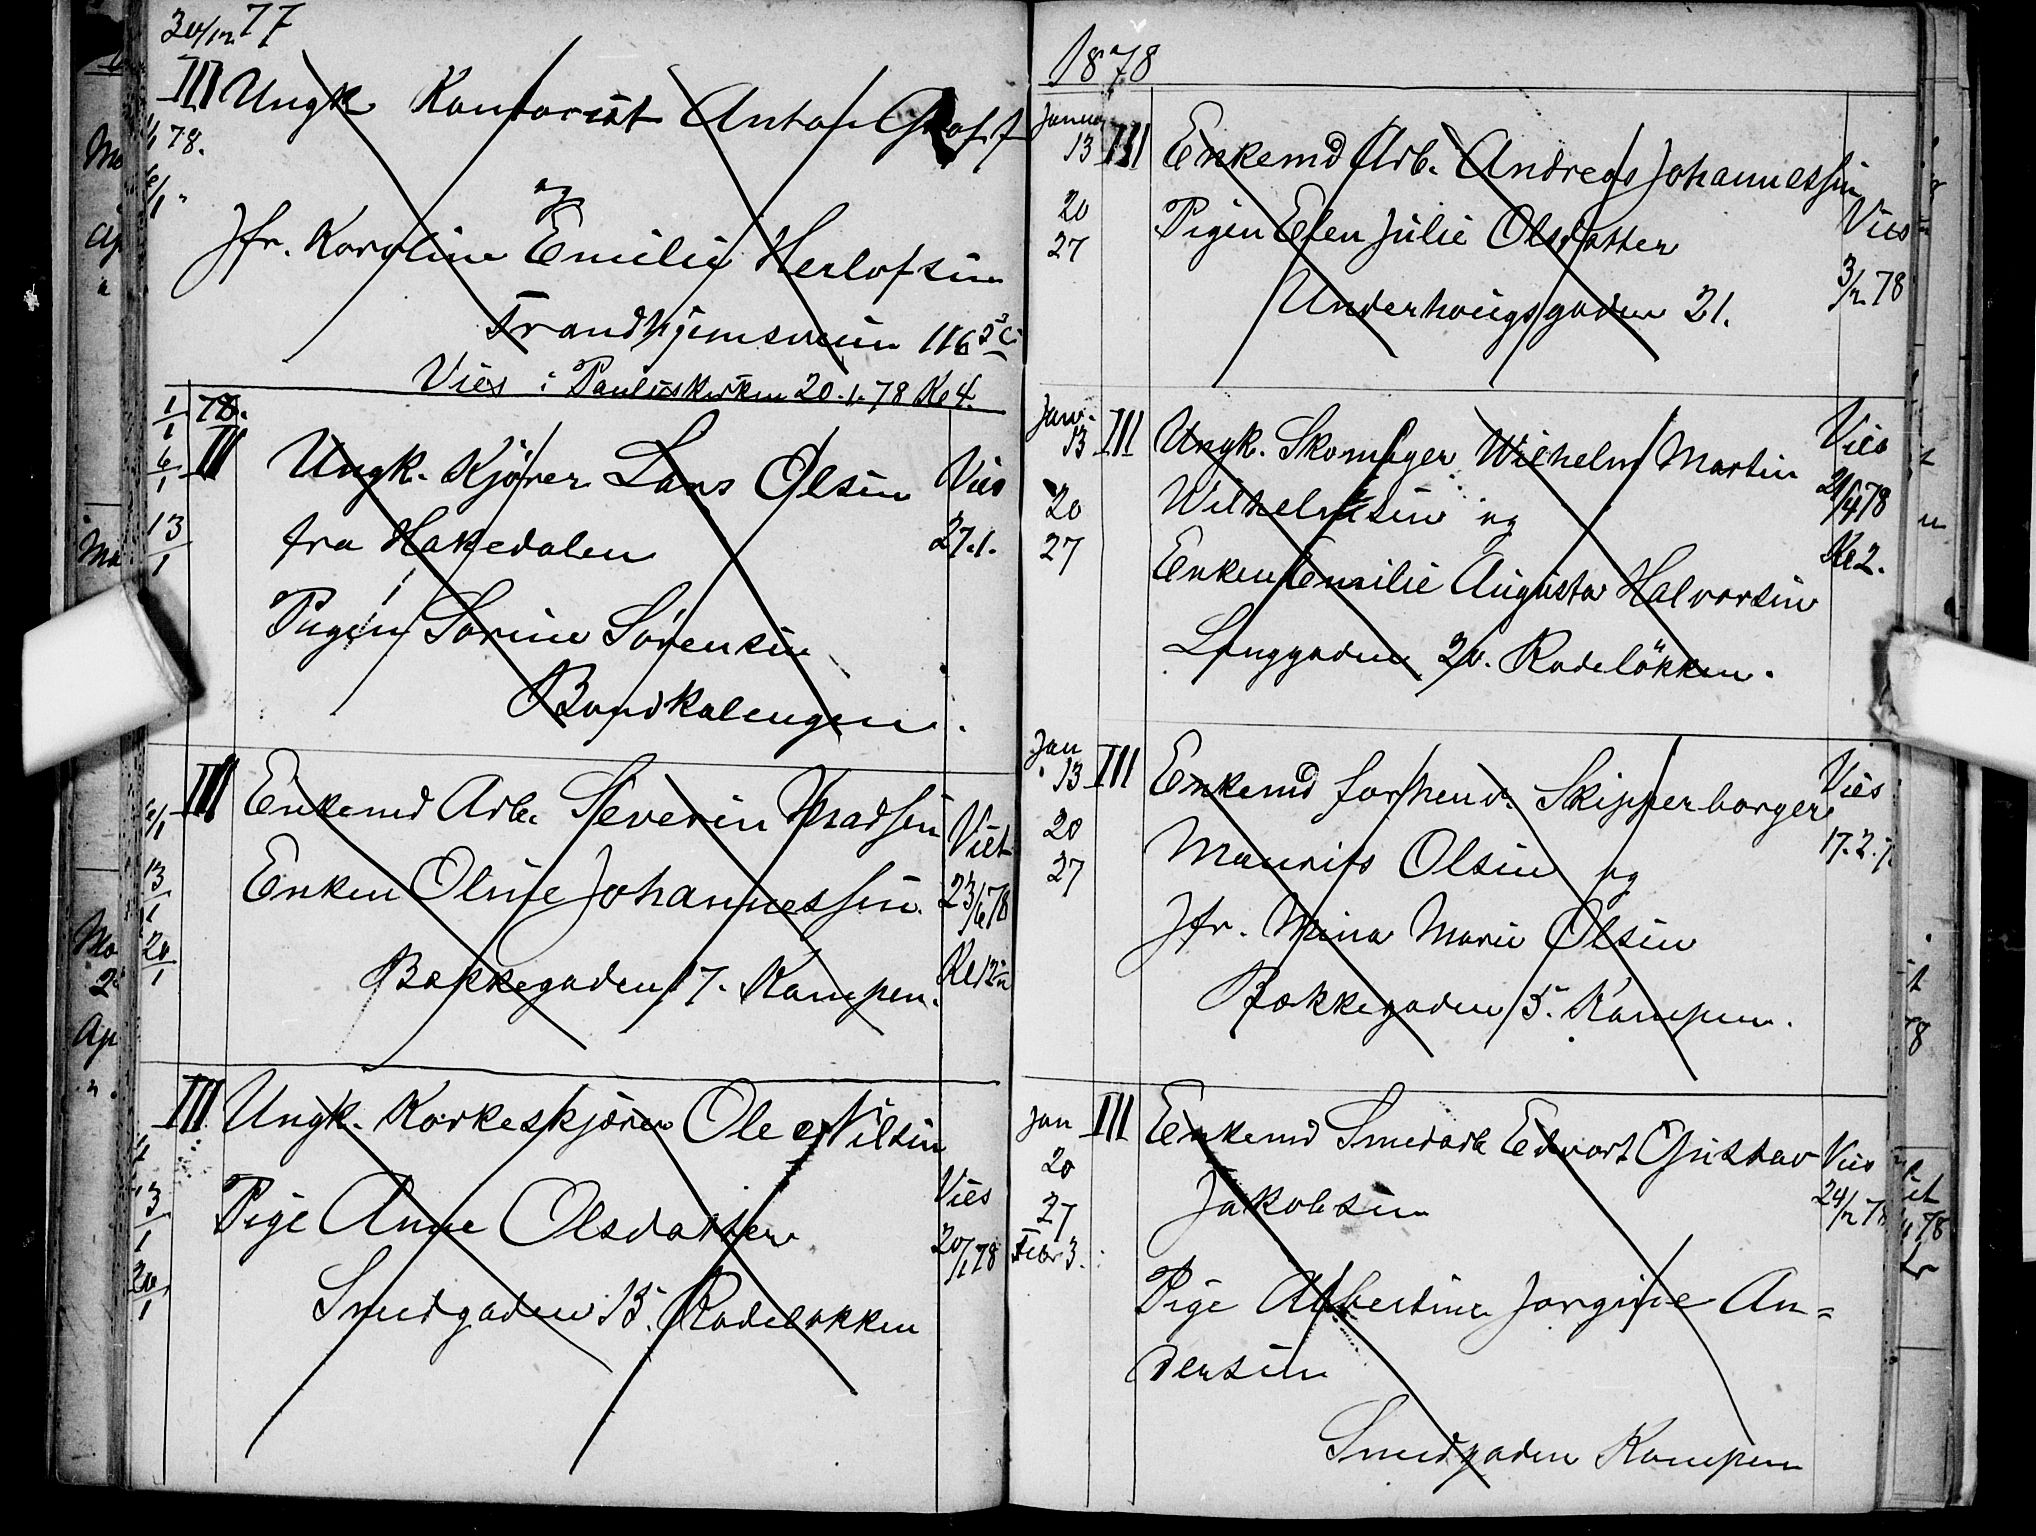 30/12 77
III Ungk Kontorist Anton Graff
1/1 78.
6/1 "
og
Jfr. Karoline Emilie Herlofsen
Trondhjemsveien 116
Vies i Pauluskirken 20.1.78 Kl 4.
1/1 78.
III
6/1
13/1
Ungk. Kjører Lars Olsen
fra Hakedalen
Pigen Sorine Sørensen
Bordkalengen.
Vies
27.1.
III
6/1
13/1
20/1
Enkemd Arb. Severin Madsen
Enken Oline Johannessen.
Bækkegaden 17. Kampen.
Viet
23/6 78
III
13/1
20/1
Ungk. Korkeskjærer Ole Nilsen
Pige Anne Olsdatter
Smedgaden 15. Rodeløkken
Vies
20/1 78
1878
Januar
13 III
20
27
Enkemd Arb. Andreas Johannessen
Pigen Elen Julie Olsdatter
Underhougsgaden 21.
Vies
3/2 78
Janr.
13 III
20
27
Ungk. Skomager Wilhelm Martin
Wilhelmsen og
Enken Emilie Augusta Halvorsen
Langgaden 20. Rodeløkken.
Vies
21/4 78
Kl 2.
Jan
13 III
20
27
Enkemd forhenv. Skipperborger
Maurits Olsen og
Jfr. Mina Marie Olsen
Bækkegaden 5. Kampen.
Vies
17.2.7
Jan III
20
27
Febr 3.
Enkemd Smedarb Edvart Gustav
Jakobsen
Pige Albertine Jorgine An=
dersen
Smedgaden Kampen
Vies
24/2 78